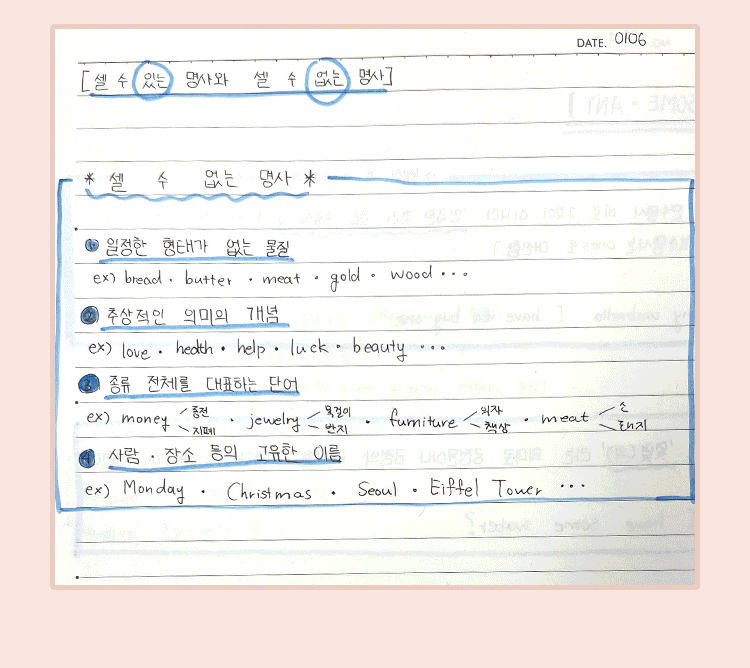 DATE. 0106
[셀 수 있는 명사와 셀 수 없는 명사]
* 셀 수 없는 명사 *
① 일정한 형태가 없는 물질
ex) bread · butter · meat · gold · wood ···
② 추상적인 의미의 개념
ex) love · health · help · luck · beauty ···
③ 종류 전체를 대표하는 단어
ex) money 동전 지폐 · jewelry 목걸이 반지 · furniture 의자 책상 · meat 소 돼지
④ 사람 · 장소 등의 고유한 이름
ex) Monday · Christmas · Seoul · Eiffel Tower ···